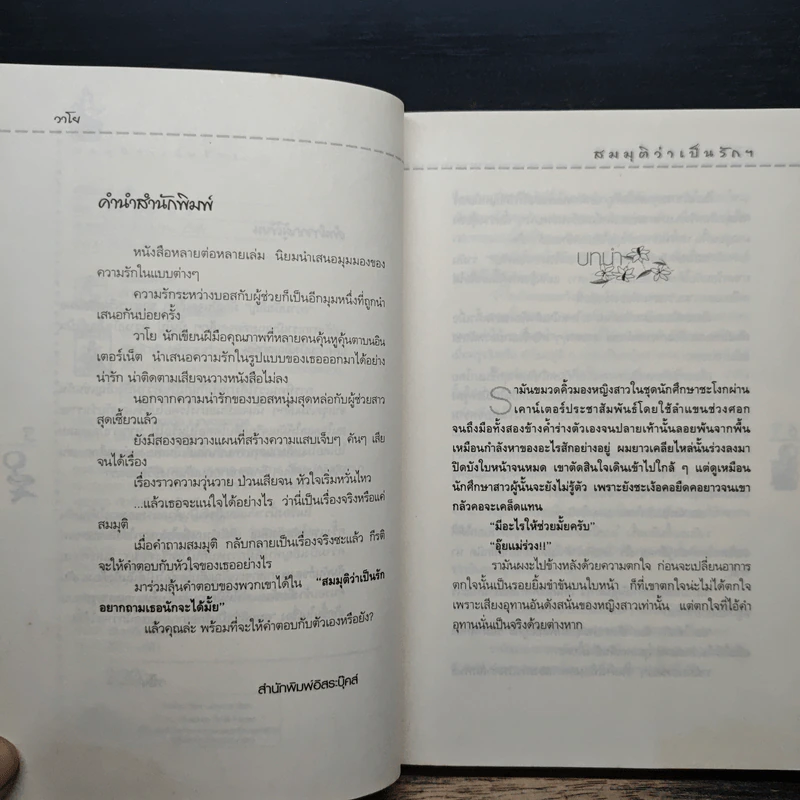 วาโย
คำนำสำนักพิมพ์
หนังสือหลายต่อหลายเล่ม นิยมนำเสนอมุมมองของ
ความรักในแบบต่างๆ
ความรักระหว่างบอสกับผู้ช่วยก็เป็นอีกมุมหนึ่งที่ถูกนำ
เสนอกันบ่อยครั้ง
วาโย นักเขียนฝีมือคุณภาพที่หลายคนคุ้นหูคุ้นตาบนอิน
เตอร์เน็ต นำเสนอความรักในรูปแบบของเธอออกมาได้อย่าง
น่ารัก น่าติดตามเสียจนวางหนังสือไม่ลง
นอกจากความน่ารักของบอสหนุ่มสุดหล่อกับผู้ช่วยสาว
สุดเซี้ยวแล้ว
ยังมีสองจอมวางแผนที่สร้างความแสบเจ็บๆ คันๆ เสีย
จนได้เรื่อง
เรื่องราวความวุ่นวาย ป่วนเสียจน หัวใจเริ่มหวั่นไหว
...แล้วเธอจะแน่ใจได้อย่างไร ว่านี่เป็นเรื่องจริงหรือแค่
สมมุติ
เมื่อคำถามสมมุติ กลับกลายเป็นเรื่องจริงซะแล้ว กีรติ
จะให้คำตอบกับหัวใจของเธออย่างไร
มาร่วมลุ้นคำตอบของพวกเขาได้ใน "สมมุติว่าเป็นรัก
อยากถามเธอนักจะได้มั้ย"
แล้วคุณล่ะ พร้อมที่จะให้คำตอบกับตัวเองหรือยัง?
สำนักพิมพ์อิสระบุ๊คส์
สมมุติว่าเป็นรักฯ
บทนำ
รามันขมวดคิ้วมองหญิงสาวในชุดนักศึกษาชะโงกผ่าน
เคาน์เตอร์ประชาสัมพันธ์โดยใช้ลำแขนช่วงศอก
จนถึงมือทั้งสองข้างค้ำร่างตัวเองจนปลายเท้านั้นลอยพ้นจากพื้น
เหมือนกำลังหาของอะไรสักอย่างอยู่ ผมยาวเคลียไหล่นั้นร่วงลงมา
ปิดบังใบหน้าจนหมด เขาตัดสินใจเดินเข้าไปใกล้ ๆ แต่ดูเหมือน
นักศึกษาสาวผู้นั้นจะยังไม่รู้ตัว เพราะยังชะเง้อคอยืดคอยาวจนเขา
กลัวคอจะเคล็ดแทน
"มีอะไรให้ช่วยมั้ยครับ"
"อุ๊ยแม่ร่วง!!"
รามันผงะไปข้างหลังด้วยความตกใจ ก่อนจะเปลี่ยนอาการ
ตกใจนั้นเป็นรอยยิ้มขำขันบนใบหน้า ก็ที่เขาตกใจน่ะไม่ได้ตกใจ
เพราะเสียงอุทานอันดังสนั่นของหญิงสาวเท่านั้น แต่ตกใจที่ไอ้คำ
อุทานนั่นเป็นจริงด้วยต่างหาก